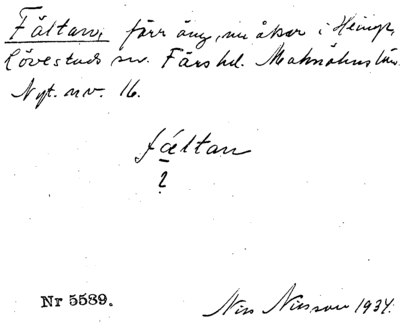 Fältan, förr äng, nu åker i Heinge,
Lövestads sn. Färs hd. Malmöhus län.
Nyt. nr. 16.
fáltan
2
Nr 5589.
Nils Nilsson 1934.